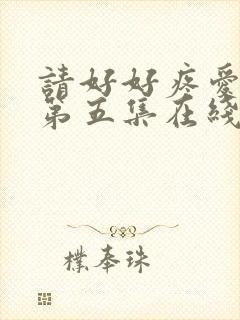 請好好疼愛
第五集在綫
樸奉珠